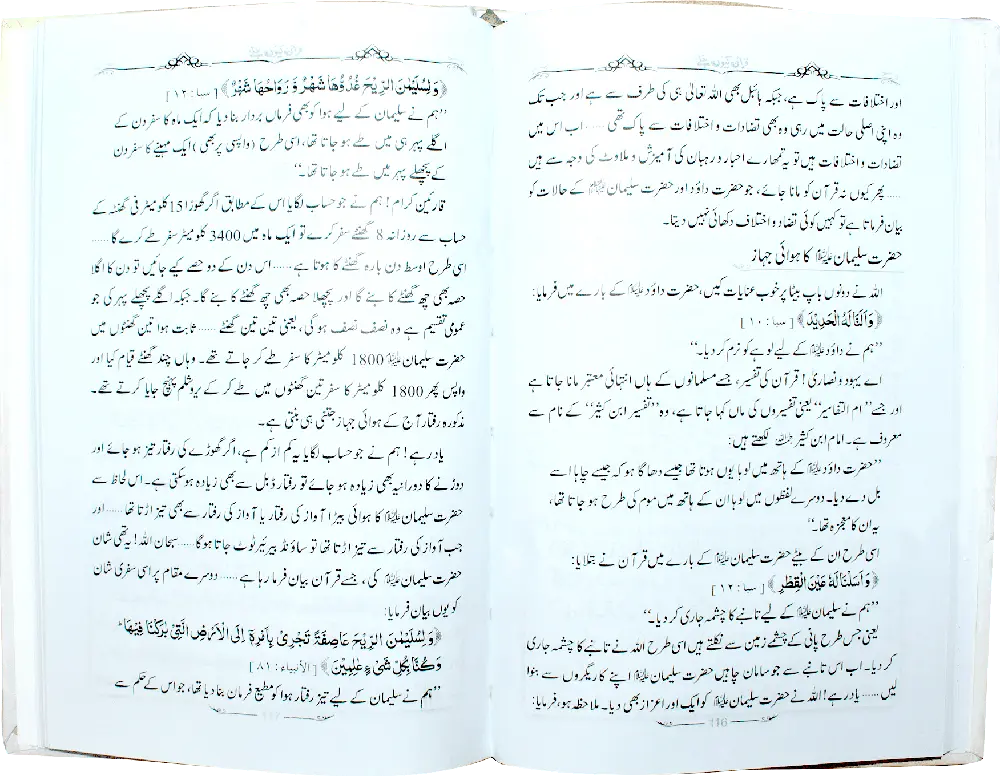 اور اختلافات سے پاک ہے، جبکہ بائبل بھی اللہ تعالیٰ ہی کی طرف سے ہے اور جب تک
وہ اپنی اصلی حالت میں رہی وہ بھی تضادات و اختلافات سے پاک تھی ...... اب اس میں
تضادات و اختلافات ہیں تو یہ تمھارے احبار و رہبان کی آمیزش و ملاوٹ کی وجہ سے ہیں
...... پھر کیوں نہ قرآن کو مانا جائے، جو حضرت داؤد اور حضرت سلیمان علیہ السلام کے حالات کو
بیان فرماتا ہے تو کہیں کوئی تضاد و اختلاف دکھائی نہیں دیتا۔
حضرت سلیمان علیہ السلام کا ہوائی جہاز
اللہ نے دونوں باپ بیٹا پر خوب عنایات کیں، حضرت داؤد علیہ السلام کے بارے میں فرمایا:
﴿وَاَلَنَّا لَهُ الْحَدِيْدَ﴾ [ سبا : ۱۰ ]
”ہم نے داؤد علیہ السلام کے لیے لوہے کو نرم کر دیا۔“
اے یہود و نصاریٰ! قرآن کی تفسیر، جسے مسلمانوں کے ہاں انتہائی معتبر مانا جاتا ہے
اور جسے ”ام التفاسیر“ یعنی تفسیروں کی ماں کہا جاتا ہے، وہ ”تفسیر ابن کثیر“ کے نام سے
معروف ہے۔ امام ابن کثیر رحمہ اللہ لکھتے ہیں:
”حضرت داؤد علیہ السلام کے ہاتھ میں لوہا یوں ہوتا تھا جیسے دھاگا ہو کہ جیسے چاہا اسے
بل دے دیا۔ دوسرے لفظوں میں لوہا ان کے ہاتھ میں موم کی طرح ہو جاتا تھا،
یہ ان کا معجزہ تھا۔“
اسی طرح ان کے بیٹے حضرت سلیمان علیہ السلام کے بارے میں قرآن نے بتلایا:
﴿وَ اَسَلْنَا لَهٗ عَيْنَ الْقِطْرِ﴾ [ سبا : ۱۲ ]
”ہم نے سلیمان علیہ السلام کے لیے تانبے کا چشمہ جاری کر دیا۔“
یعنی جس طرح پانی کے چشمے زمین سے نکلتے ہیں اسی طرح اللہ نے تانبے کا چشمہ جاری
کر دیا۔ اب اس تانبے سے جو سامان چاہیں حضرت سلیمان علیہ السلام اپنے کاریگروں سے بنوا
لیں ...... یاد رہے! اللہ نے حضرت سلیمان علیہ السلام کو ایک اور اعزاز بھی دیا۔ ملاحظہ ہو، فرمایا:
116
﴿وَ لِسُلَيْمٰنَ الرِّيْحَ غُدُوُّهَا شَهْرٌ وَّ رَوَاحُهَا شَهْرٌ﴾ [ سبا : ۱۲ ]
”ہم نے سلیمان کے لیے ہوا کو بھی فرماں بردار بنا دیا کہ ایک ماہ کا سفر دن کے
اگلے پہر ہی میں طے ہو جاتا تھا، اسی طرح (واپسی پر بھی) ایک مہینے کا سفر دن
کے پچھلے پہر میں طے ہو جاتا تھا۔“
قارئین کرام! ہم نے جو حساب لگایا اس کے مطابق اگر گھوڑا 15 کلومیٹر فی گھنٹے کے
حساب سے روزانہ 8 گھنٹے سفر کرے تو ایک ماہ میں 3400 کلومیٹر سفر طے کرے گا ......
اسی طرح اوسط دن بارہ گھنٹے کا ہوتا ہے ...... اس دن کے دو حصے کیے جائیں تو دن کا اگلا
حصہ بھی چھ گھنٹے کا بنے گا اور پچھلا حصہ بھی چھ گھنٹے کا بنے گا۔ جبکہ اگلے پچھلے پہر کی جو
عمومی تقسیم ہے وہ نصف نصف ہو گی، یعنی تین تین گھنٹے ...... ثابت ہوا تین گھنٹوں میں
حضرت سلیمان علیہ السلام 1800 کلومیٹر کا سفر طے کر جاتے تھے۔ وہاں چند گھنٹے قیام کیا اور
واپس پھر 1800 کلومیٹر کا سفر تین گھنٹوں میں طے کر کے یروشلم پہنچ جایا کرتے تھے۔
مذکورہ رفتار آج کے ہوائی جہاز جتنی ہی بنتی ہے۔
یاد رہے! ہم نے جو حساب لگایا یہ کم از کم ہے، اگر گھوڑے کی رفتار تیز ہو جائے اور
دوڑنے کا دورانیہ بھی زیادہ ہو جائے تو رفتار ڈبل سے بھی زیادہ ہو سکتی ہے۔ اس لحاظ سے
حضرت سلیمان علیہ السلام کا ہوائی بیڑا آواز کی رفتار یا آواز کی رفتار سے بھی تیز اڑتا تھا ...... اور
جب آواز کی رفتار سے تیز اڑتا تھا تو ساؤنڈ بیریئر ٹوٹ جاتا ہوگا ...... سبحان اللہ! یہ تھی شان
حضرت سلیمان علیہ السلام کی، جسے قرآن بیان فرما رہا ہے ...... دوسرے مقام پر اسی سفری شان
کو یوں بیان فرمایا:
﴿وَ لِسُلَيْمٰنَ الرِّيْحَ عَاصِفَةً تَجْرِيْ بِاَمْرِهٖ اِلَى الْاَرْضِ الَّتِيْ بٰرَكْنَا فِيْهَا ؕ
وَ كُنَّا بِكُلِّ شَيْءٍ عٰلِمِيْنَ﴾ [ الأنبياء : ۸۱ ]
”ہم نے سلیمان کے لیے تیز رفتار ہوا کو مطیع فرمان بنا دیا تھا، جو اس کے حکم سے
117